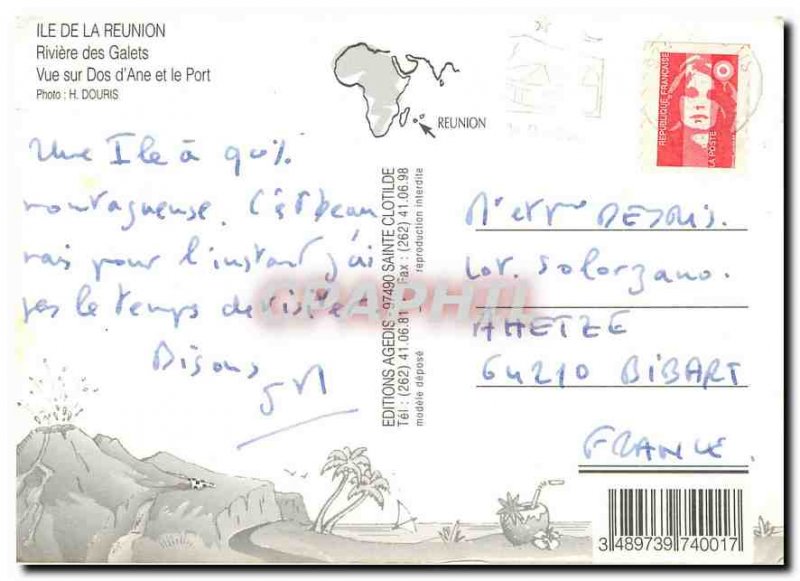 ILE DE LA REUNION
Rivière des Galets
Vue sur Dos d'Ane et le Port
Photo : H. DOURIS
REUNION
REPUBLIQUE FRANÇAISE
LA POSTE
Une Ile à
montagneuse. C'est beau
mais pour l'instant j'ai
pas le temps de visiter
Bisous
EDITIONS AGEDIS - 97490 SAINTE CLOTILDE
Tél : (262) 41.06.81 Fax : (262) 41.06.98
modèle déposé reproduction interdite
CPAPHIL
M et Mme
Lot. Solorzano.
AHETZE
64210 BIBART
FRANCE.
3 489739 740017